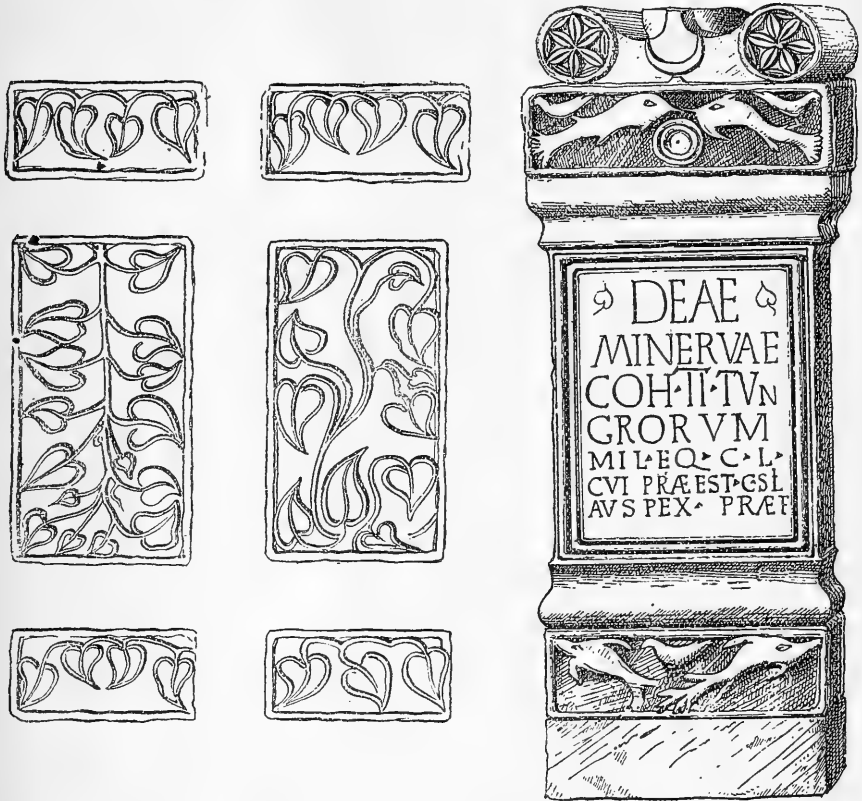 DEAE
MINERVAE
COH·II·TVN
GRORVM
MIL·EQ·C·L·
CVI PRÆEST·G·SIL
AVSPEX· PRÆF